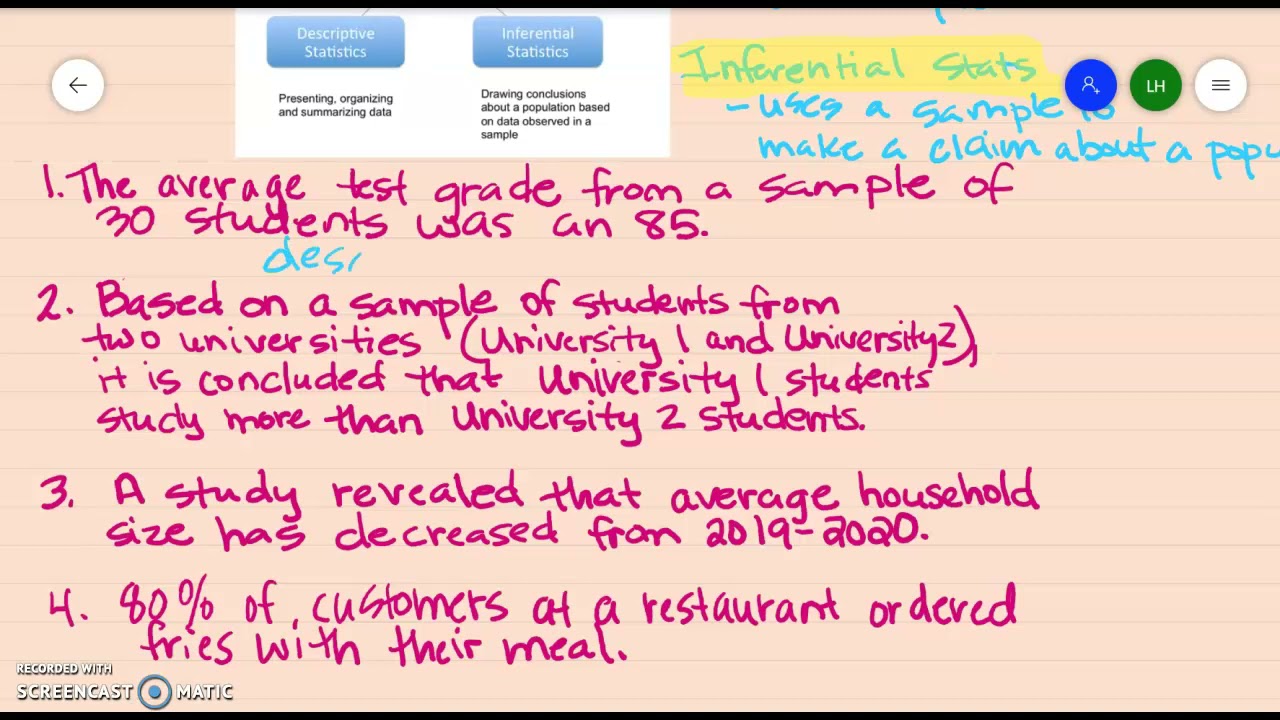 Descriptive
Statistics
Inferential
Statistics
Presenting, organizing
and summarizing data
Drawing conclusions
about a population based
on data observed in a
sample
Inferential Stats
- uses a sample to
make a claim about a popu
LH
1. The average test grade from a sample of
30 students was an 85.
des
2. Based on a sample of students from
two universities (University 1 and University 2),
it is concluded that University 1 students
study more than University 2 students.
3. A study revealed that average household
size has decreased from 2019-2020.
4. 80% of customers at a restaurant ordered
fries with their meal.
RECORDED WITH
SCREENCAST MATIC